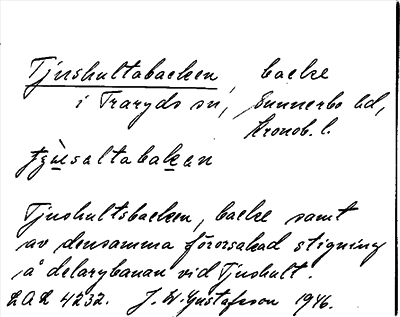 Tjushultabacken, backe
i Traryds sn, Sunnerbo hd,
Kronob. l.
Tjushultsbacken, backe samt
av densamma förorsakad stigning
å delarybanan vid Tjushult.
LAL 4232. J. W. Gustafsson 1946.